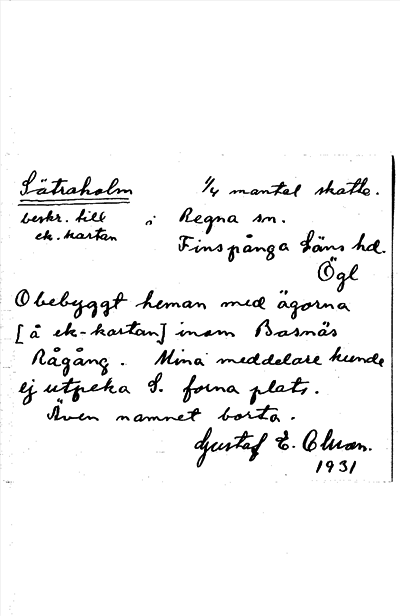 Sätraholm 1/4 mantal skatte.
beskr. till i Regna sn.
ek. kartan Finspånga Läns hd.
Ögl
Obebyggt heman med ägorna
[å ek-kartan] inom Basnäs
Rågång. Mina meddelare kunde
ej utpeka S. forna plats.
Även namnet borta.
Gustaf E. Olsson.
1931